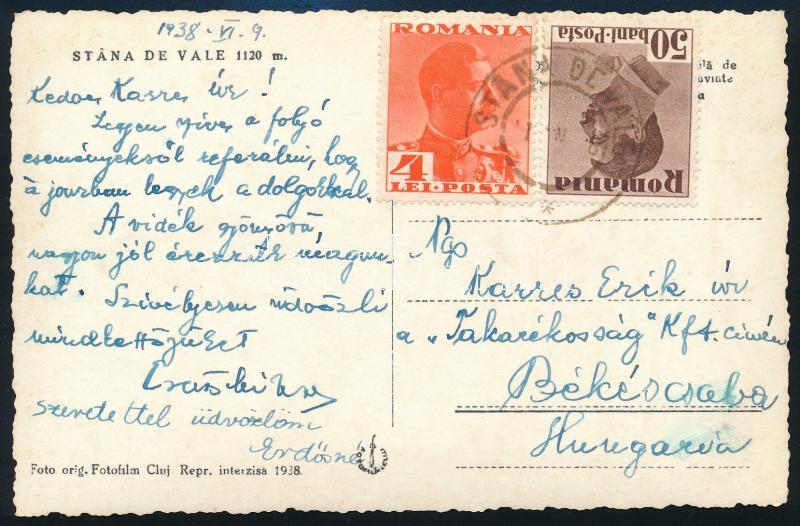 1938. VI. 9.
STÂNA DE VALE 1120 m.
Kedves Karres úr!
Legyen szíves a folyó
eseményekről referálni, hogy
à jourban legyek a dolgokkal.
A vidék gyönyörű,
nagyon jól érezzük magun-
kat. Szívélyesen üdvözli
mindkettőjüket
szeretettel üdvözlöm
Erdősné
Foto orig. Fotofilm Cluj Repr. interzisă 1938.
ROMANIA
4
LEI·POSTA
50
bani·Posta
Romania
STÂNA DE VALE
ilă de
uvinte
a
Ngo
Karres Erik úr
a „Takarékosság" Kft. címén
Békéscsaba
Hungaria